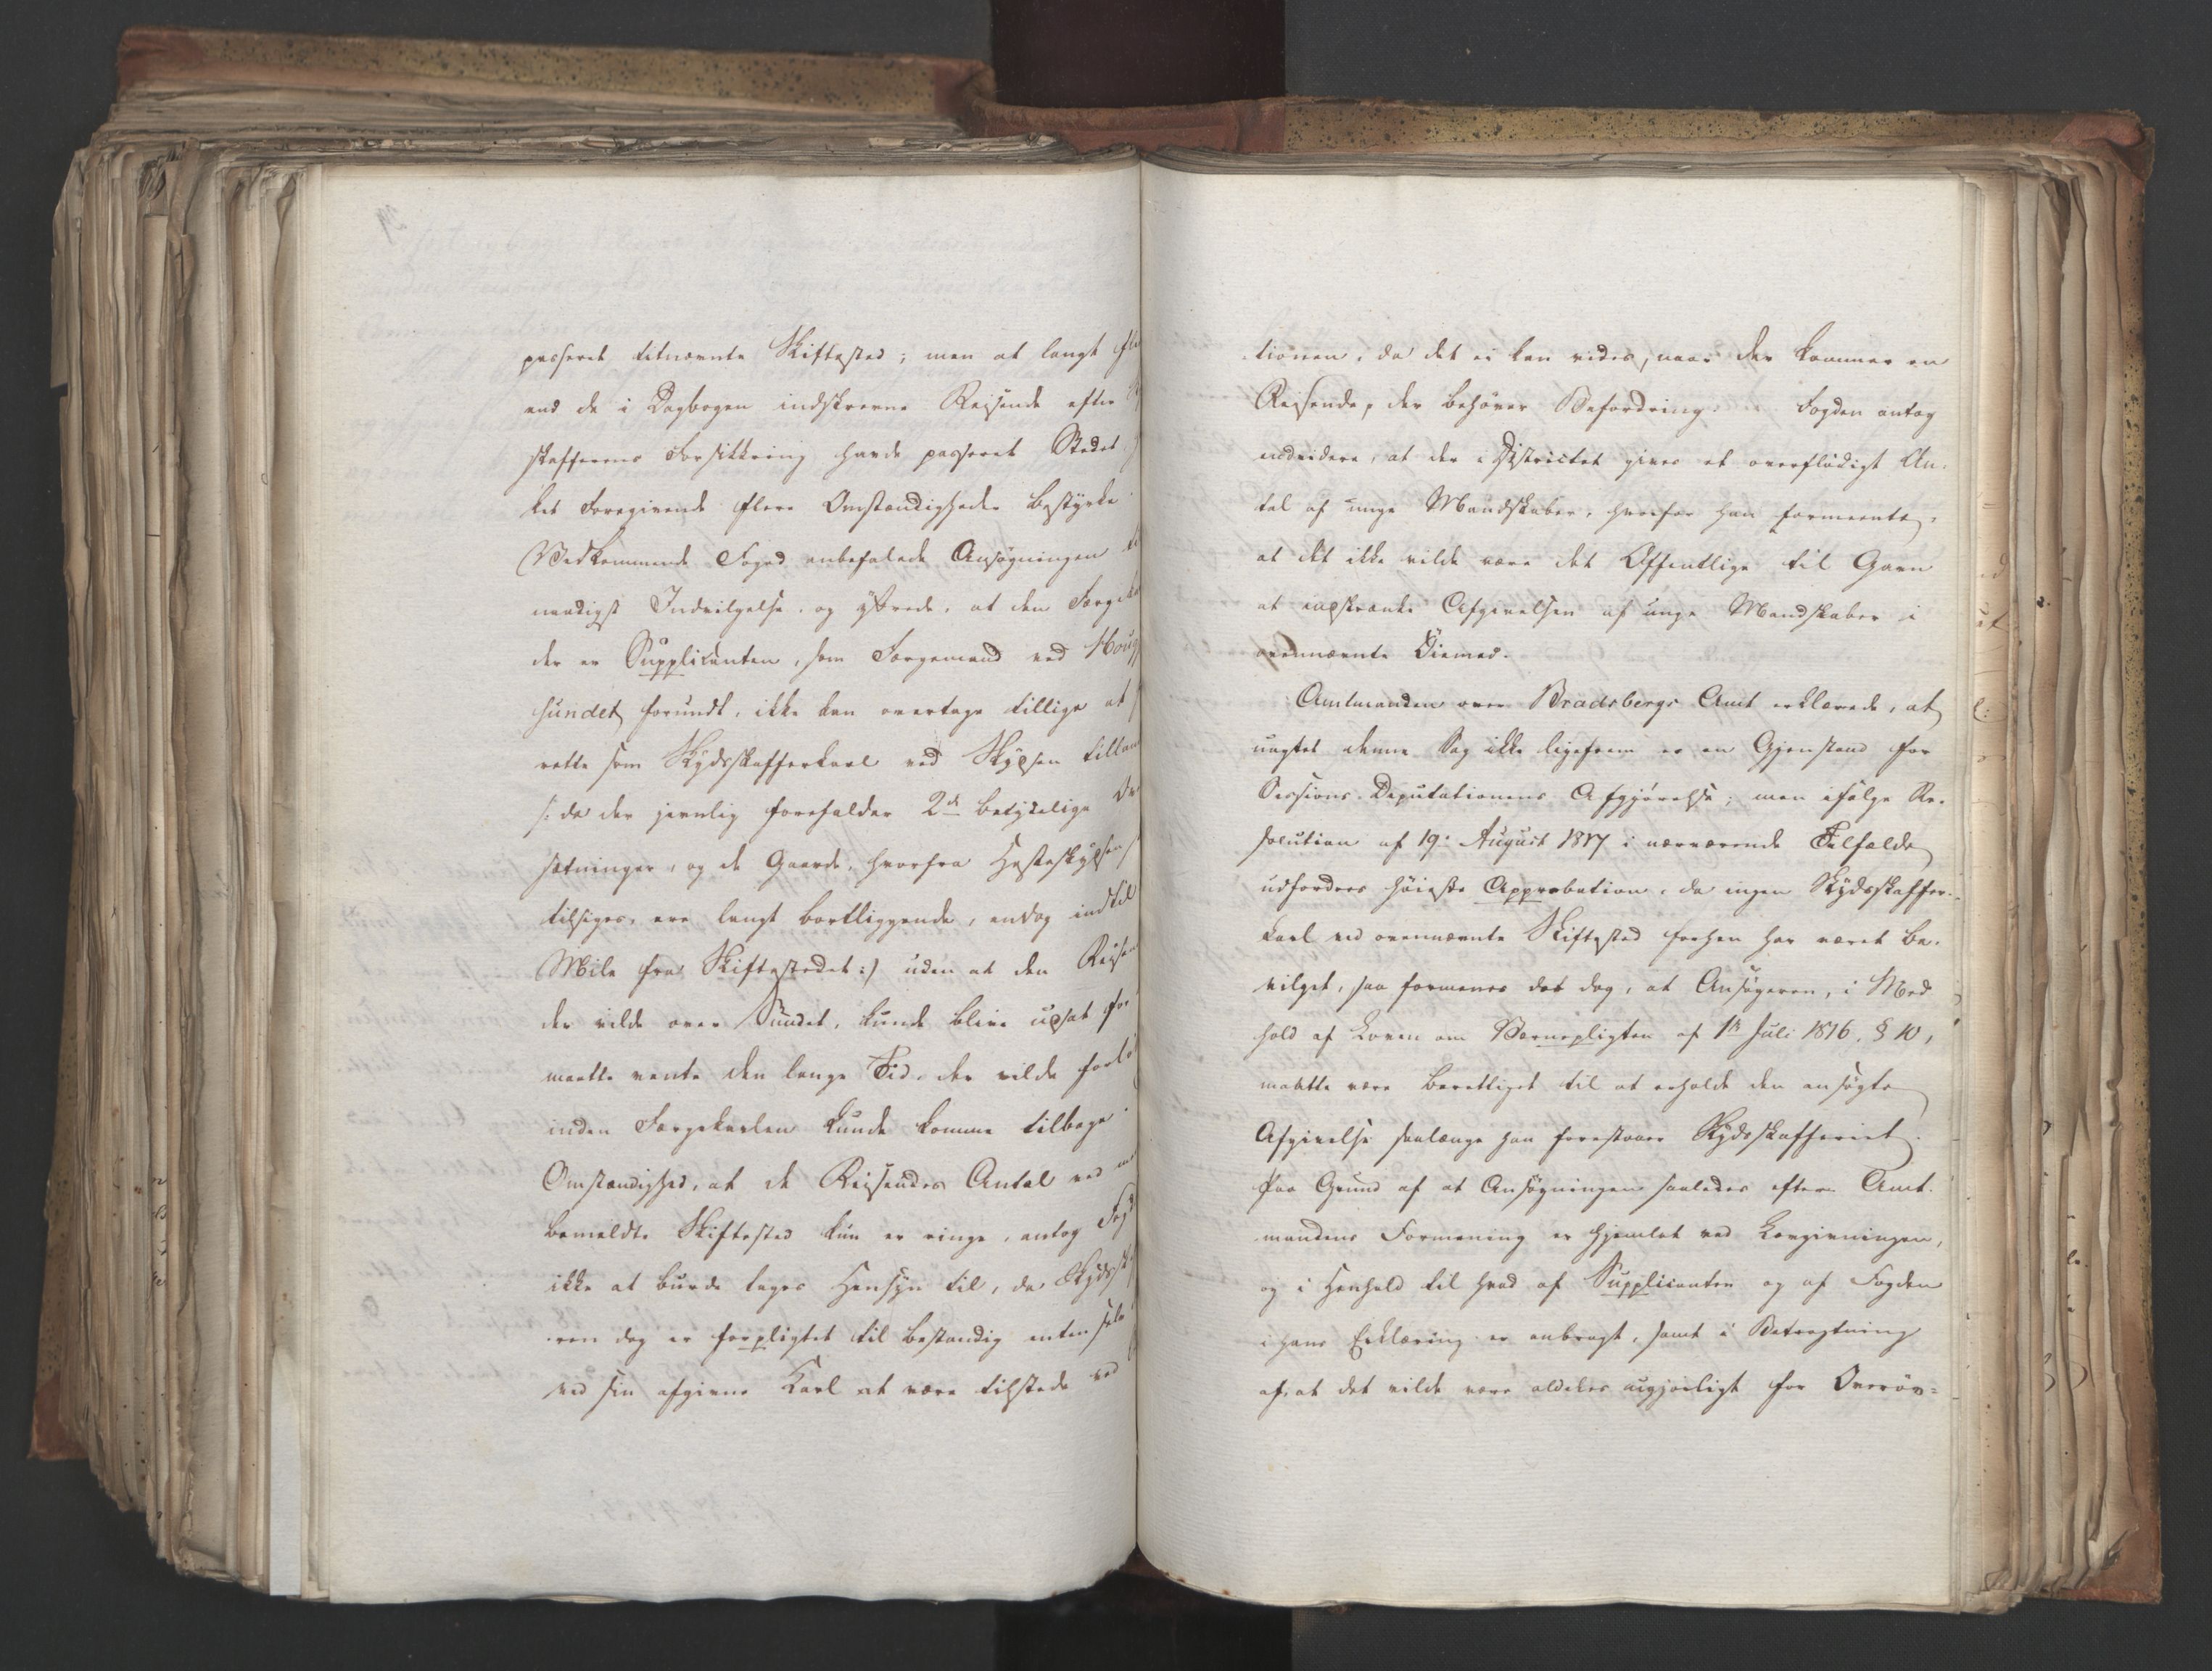 passeret titnævnte Skiftested; men at langt
end de i Dagbogen indskrevne Reisende efter
skafferens Forsikkring havde passeret Stedet
ket Foregivende flere Omstændigheder bestyrke
Vedkommende Foged anbefalede Ansøgningen
naadigst Indvilgelse, og yttrede, at den Færge
der er Supplicanten, som Færgemand ved Houg
sundet forundt, ikke kan overtage tillige at
rette som Skydsskafferkarl ved Skydsen tillan
/: da der jevnlig forefalder 2de betydelige
sætninger, og de Gaarde, hvorfra Hesteskydsen
tilsiges, ere langt bortliggende, endog indtil
Miil fra Skiftestedet :/ uden at den Reisen
der vilde over Sundet, kunde blive udsat for
maatte vente den lange Tid, der vilde forlø
inden Færgekarlen kunde komme tilbage.
Omstændighed, at de Reisendes Antal ved
bemeldte Skiftested kun er ringe, antog Fogd
ikke at burde tages Hensyn til, da Skydssk
ren dog er forpligtet til bestandig enten selv
ved sin afgivne Karl at være tilstede ved
tionen, da det ei kan vides, naar der kommer en
Reisende, der behøver Befordring. Fogden antog
endvidere, at der i Districtet gives et overflødigt An-
tal af unge Mandskaber, hvorfor han formeente,
at det ikke vilde være det Offentlige til Gavn
at indskrænke Afgivelsen af unge Mandskaber i
ovennævnte Øiemed.
Amtmanden over Bradsbergs Amt erklærede, at
uagtet denne Sag ikke ligefrem er en Gjenstand for
Sessions-Deputationens Afgjørelse; men ifølge Re-
solution af 19. August 1817 i nærværende Tilfælde
udfordres høieste Approbation, da ingen Skydsskaffer-
karl ved ovennævnte Skiftested forhen har været be-
vilget, saa formenes det dog, at Ansøgeren, i Med
hold af Loven om Værnepligten af 1ste Juli 1816, § 10,
maatte være berettiget til at erholde den ansøgte
Afgivelse saalænge han forestaaer Skydsskafferiet.
Paa Grund af at Ansøgningen saaledes efter Amt-
mandens Formening er hjemlet ved Lovgivningen,
og i Henhold til hvad af Supplicanten og af Fogden
i hans Erklæring er anbragt, samt i Betragtning
af, at det vilde være aldeles ugjørligt for Overøv=